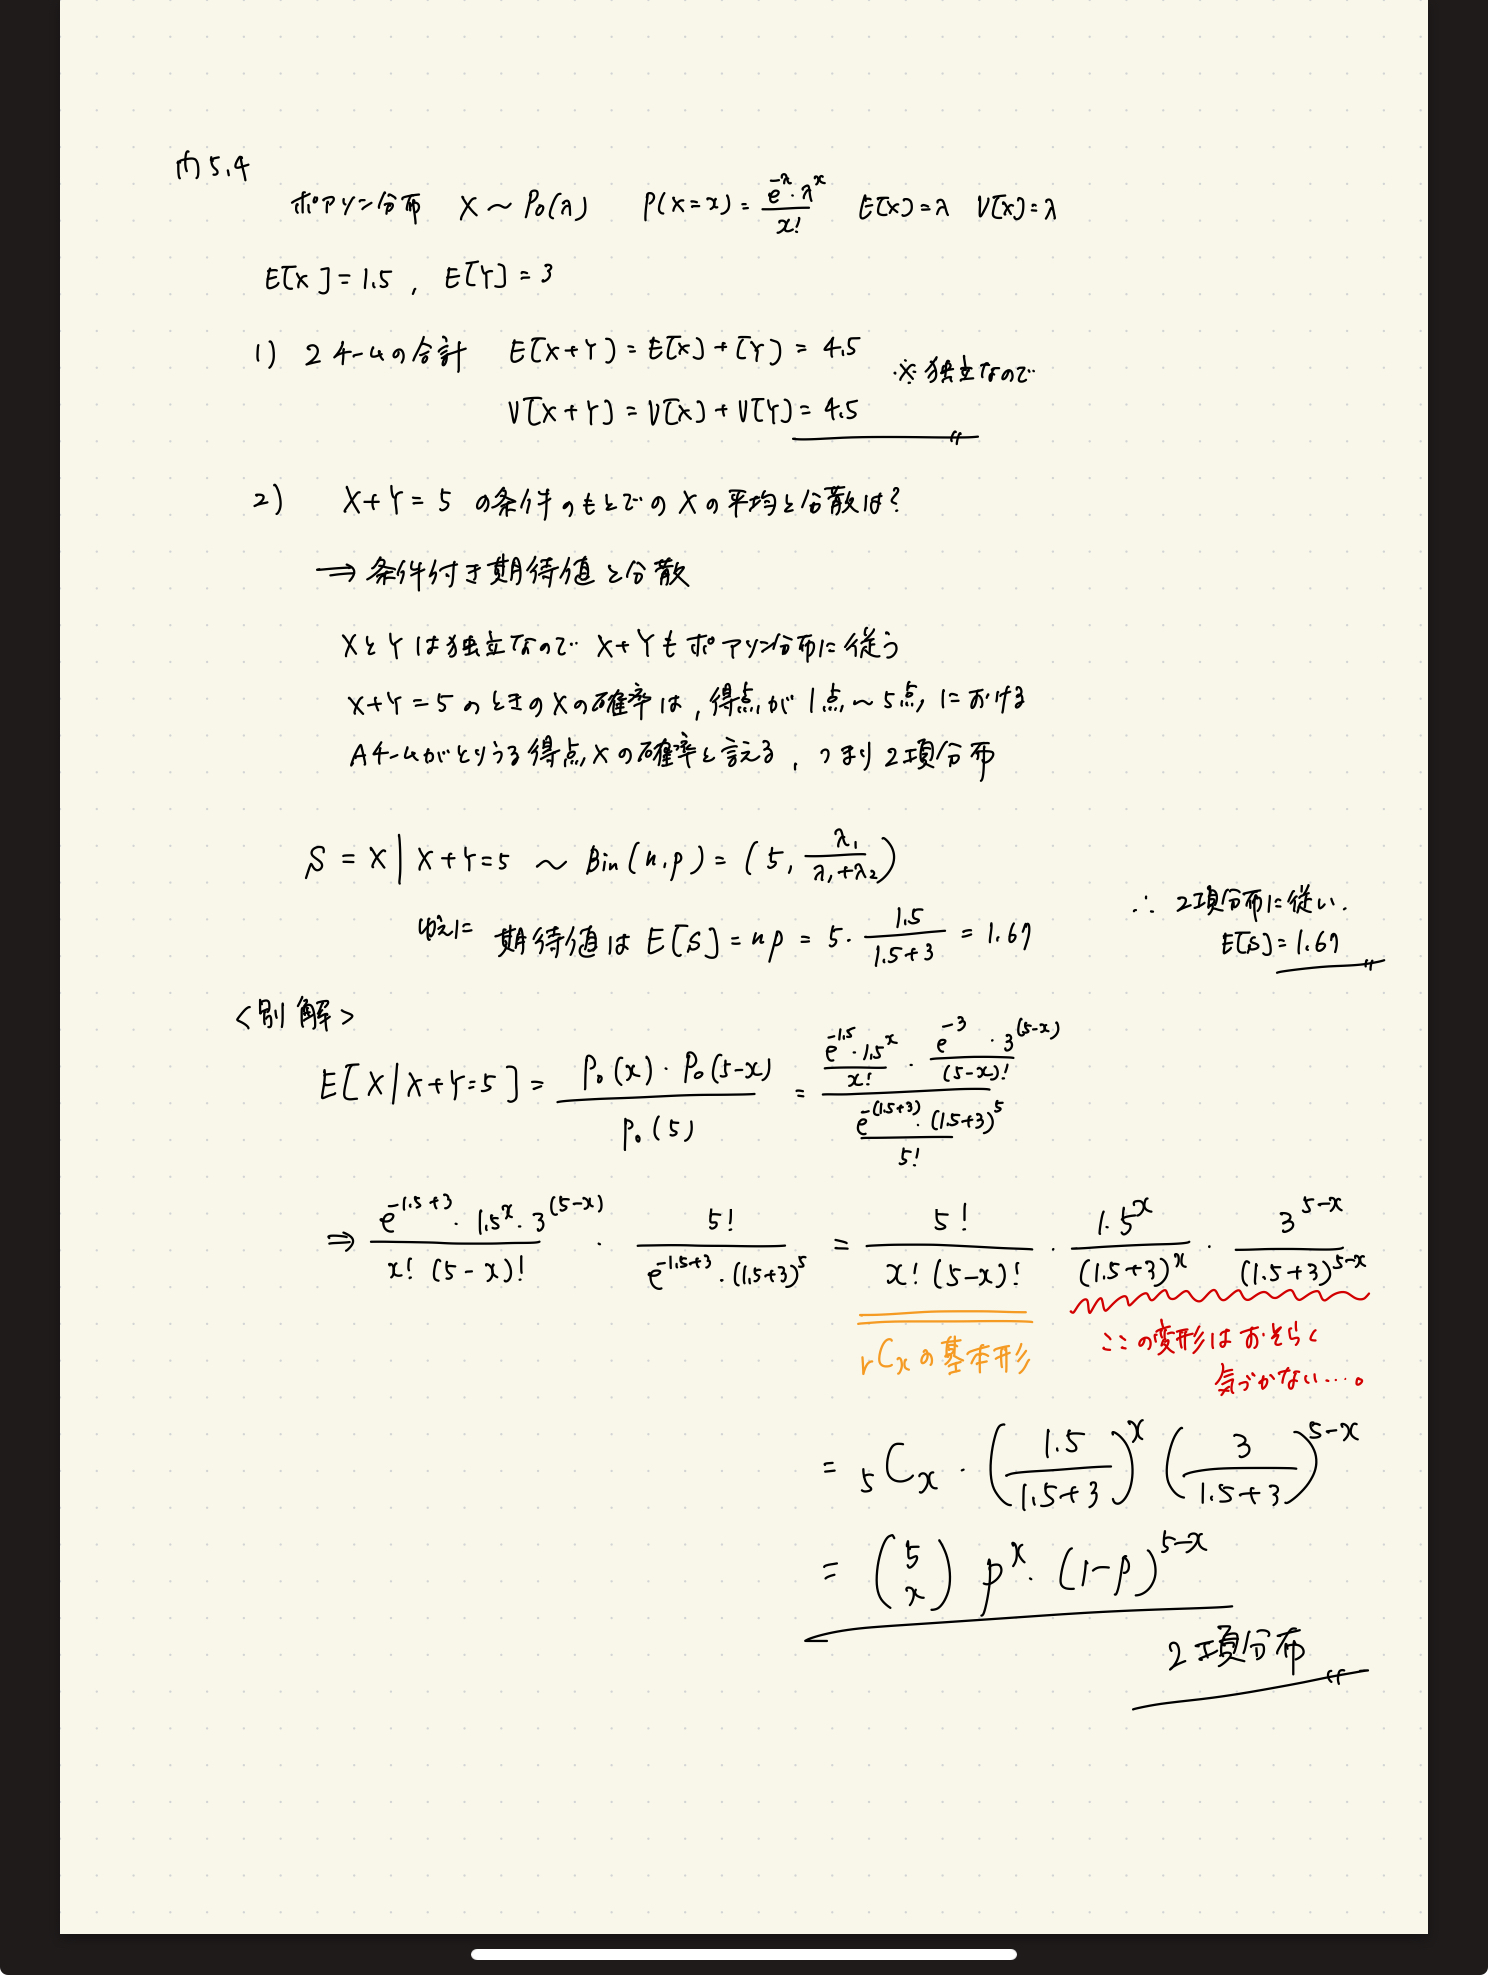 問5.4
ポアソン分布 X ~ Po(λ) P(X=x) = e^{-λ}・λ^x / x! E[X]=λ V[X]=λ
E[X]=1.5 , E[Y]=3
1) 2チームの合計 E[X+Y] = E[X]+[Y] = 4.5
※独立なので
V[X+Y] = V[X]+V[Y] = 4.5
2) X+Y=5 の条件のもとでの X の平均と分散は?
⇒ 条件付き期待値と分散
XとYは独立なので X+Yもポアソン分布に従う
X+Y=5のときのXの確率は,得点が1点~5点における
Aチームがとりうる得点Xの確率と言える,つまり2項分布
S = X | X+Y=5 ~ Bin(n,p) = (5, λ₁/(λ₁+λ₂))
ゆえに 期待値は E[S] = np = 5・1.5/(1.5+3) = 1.67
∴ 2項分布に従い.
E[S]=1.67
<別解>
E[X|X+Y=5] = Po(x)・Po(5-x) / Po(5) = (e^{-1.5}・1.5^x / x! ・ e^{-3}・3^{(5-x)} / (5-x)!) / (e^{-(1.5+3)}・(1.5+3)^5 / 5!)
⇒ e^{-1.5+3}・1.5^x・3^{(5-x)} / x!(5-x)! ・ 5! / e^{-1.5+3}・(1.5+3)^5 = 5! / x!(5-x)! ・ 1.5^x / (1.5+3)^x ・ 3^{5-x} / (1.5+3)^{5-x}
rCxの基本形
ここの変形はおそらく
気づかない...。
= ₅Cx・(1.5/(1.5+3))^x (3/(1.5+3))^{5-x}
= (5 x) p^x・(1-p)^{5-x}
2項分布